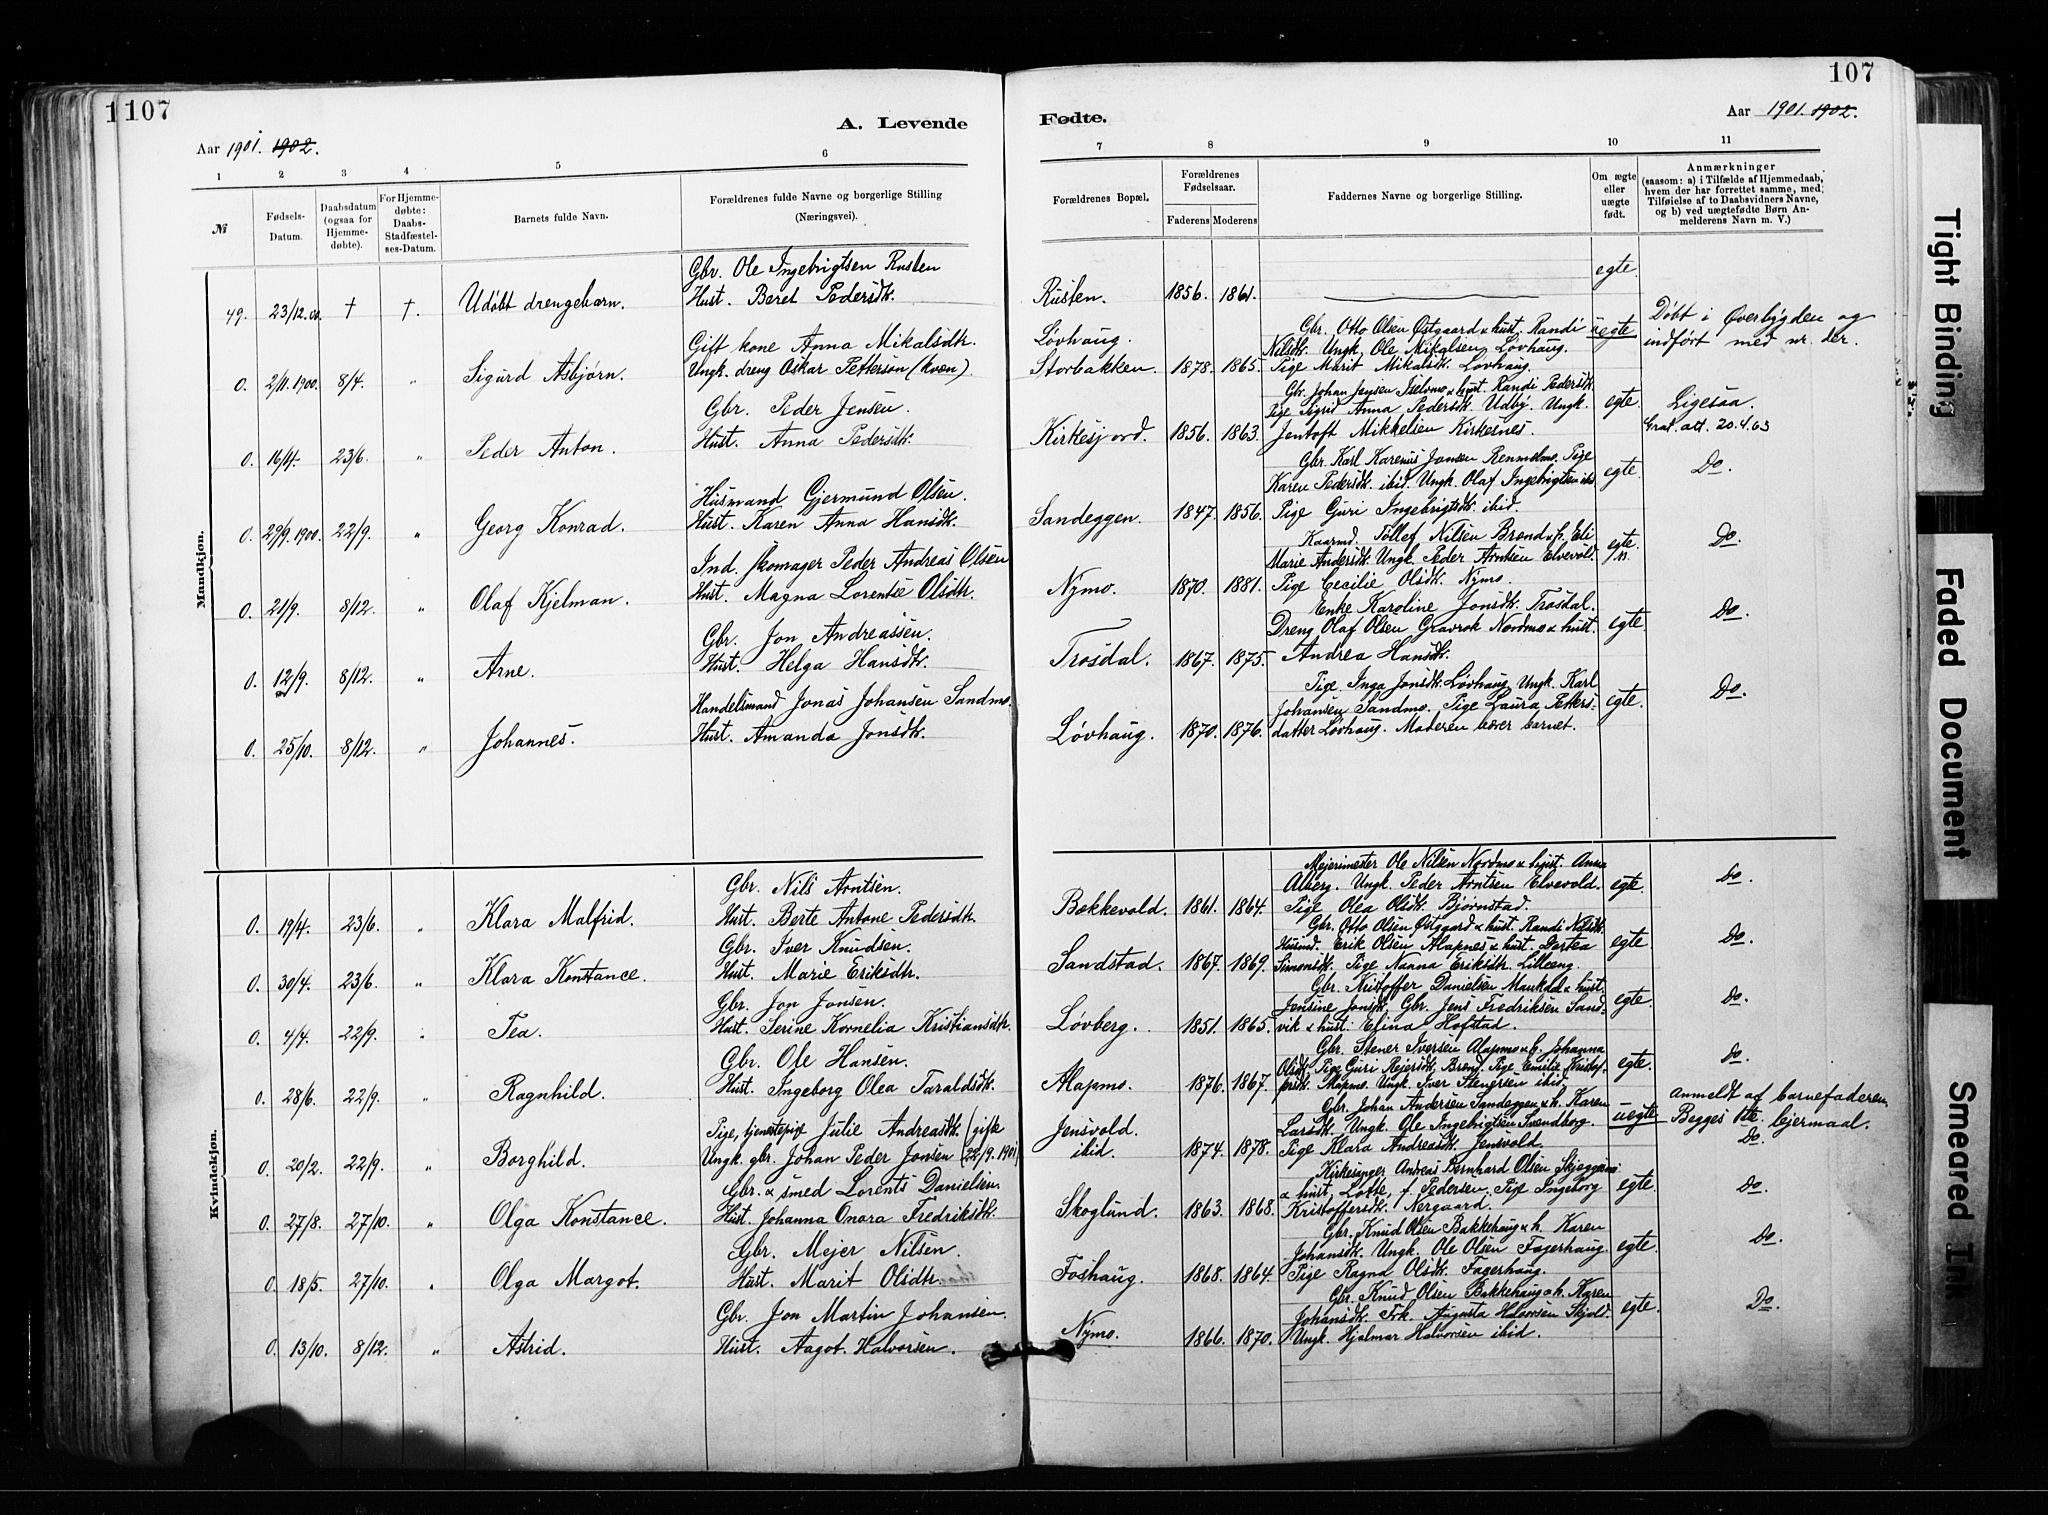 1107
A. Levende
Aar 1901. 1902.
1 2 3 4 5 6
№
Fødsels-
Datum.
Daabsdatum
(ogsaa for
Hjemme-
døbte).
For Hjemme-
døbte:
Daabs-
Stadfæstel-
ses-Datum.
Barnets fulde Navn.
Forældrenes fulde Navne og borgerlige Stilling
(Næringsvei).
Mandkjøn.
Gbr. Ole Ingebrigtsen Rusten
49. 23/12.00. † †. Udøbt drengebarn. Hust. Beret Pedersdtr.
Gift kone Anna Mikalsdtr.
0. 2/11.1900. 8/4. " Sigurd Asbjørn. Ungk. dreng Oskar Petterson (kvæn).
Gbr. Peder Jensen.
0. 16/4. 23/6. " Peder Anton. Hust. Anna Pedersdtr.
Husmand Gjermund Olsen.
0. 29/9.1900. 22/9. " Georg Konrad. Hust. Karen Anna Hansdtr.
Ind. skomager Peder Andreas Olsen
0. 21/9. 8/12. " Olaf Kjelman. Hust. Magna Lorentse Olsdtr.
Gbr. Jon Andreassen.
0. 12/9. 8/12. " Arne. Hust. Helga Hansdtr.
Handelsmand Jonas Johansen Sandmo.
0. 25/10. 8/12. " Johannes. Hust. Amanda Jonsdtr.
Kvindekjøn.
Gbr. Nils Arntsen.
0. 19/4. 23/6. " Klara Malfrid. Hust. Berte Antone Pedersdtr.
Gbr. Iver Knudsen.
0. 30/4. 23/6. " Klara Konstance. Hust. Marie Eriksdtr.
Gbr. Jon Jonsen.
0. 4/4. 22/9. " Tea. Hust. Serine Kornelia Kristiansdtr.
Gbr. Ole Hansen.
0. 28/6. 22/9. " Ragnhild. Hust. Ingeborg Olea Taraldsdtr.
Pige, tjenestepige Julie Andreasdtr. (gifte
0. 20/2. 22/9. " Borghild. Ungk. gbr. Johan Peder Jonsen (22/9.1901)
Gbr. & smed Lorents Danielsen.
0. 27/8. 27/10. " Olga Konstance. Hust. Johanna Onara Fredriksdtr.
Gbr. Mejer Nilsen.
0. 18/5. 27/10. " Olga Margot. Hust. Marit Olsdtr.
Gbr. Jon Martin Johansen.
0. 13/10. 8/12. " Astrid. Hust. Aagot Halvorsen.
107
Fødte.
Aar 1901. 1902.
7 8 9 10 11
Forældrenes Bopæl.
Forældrenes
Fødselsaar.
Faderens Moderens
Faddernes Navne og borgerlige Stilling.
Om ægte
eller
uægte
født.
Anmærkninger
(saasom: a) i Tilfælde af Hjemmedaab,
hvem der har forrettet samme, med
Tilføielse af to Daabsvidners Navne,
og b) ved uægtefødte Børn An-
melderens Navn m. V.)
egte.
Rusten. 1856. 1861.
Gbr. Otto Olsen Østgaard & hust. Randi uegte Døbt i Øverbygden og
Løvhaug. Nilsdtr. Ungk. Ole Mikalsen Løvhaug. indført med nr. der.
Storbakken. 1878. 1865. Pige Marit Mikalsdtr. Løvhaug.
Gbr. Johan Jensen Iselvmo & hust. Randi Pedersdtr.
Pige Sigrid Anna Pedersdtr. Udby. Ungk. egte. Ligesaa.
Kirkesjord. 1856. 1863. Jentoft Mikkelsen Kirkesnes. Grat. att. 20.4.63
Gbr. Karl Karenus Jonsen Rennelmo. Pige
Karen Pedersdtr. ibid. Ungk. Olaf Ingebrigtsen ibid. egte. Do.
Sandeggen. 1847. 1856. Pige Guri Ingebrigtsdtr. ibid.
Kaarmd. Tollef Nilsen Brænd & h. Eli
Marie Andersdtr. Ungk. Peder Arntsen Elvevold. egte. Do.
Nymo. 1870. 1881. Pige Cecilie Olsdtr. Nymo.
Enke Karoline Jonsdtr. Trosdal.
Dreng Olaf Olsen Gravrok Nordmo & hust. egte. Do.
Trosdal. 1867. 1875. Andrea Hansdtr.
Pige Inga Jonsdtr. Løvhaug. Ungk. Karl
Johansen Sandmo. Pige Laura Petters- egte. Do.
Løvhaug. 1870. 1876. datter Løvhaug. Moderen bærer barnet.
Mejerimester Ole Nilsen Nordmo & hust. Anna
Alberg. Ungk. Peder Arntsen Elvevold. egte. Do.
Bakkevold. 1861. 1864. Pige Olea Olsdtr. Bjørnstad.
Gbr. Otto Olsen Østgaard & hust. Randi Nilsdtr.
Husmd. Erik Olsen Alapnes & hust. Dortea egte. Do.
Sandstad. 1867. 1869. Simonsdtr. Pige Nanna Eriksdtr. Lilleeng.
Gbr. Kristoffer Danielsen Maukdal & hust.
Jensine Jonsdtr. Gbr. Jens Fredriksen Sand- egte. Do.
Løvberg. 1851. 1865. vik & hust. Elina Hofstad.
Gbr. Stener Iversen Alapmo & h. Johanna
Olsdtr. Pige Guri Pejersdtr. Brænd. Pige Emilie Kristof- egte. Do.
Alapmo. 1876. 1867. fersdtr. Alapmo. Ungk. Iver Stenersen ibid.
Gbr. Johan Andersen Sandeggen & h. Karen uegte Anmeldt af barnefaderen.
Jensvold. Larsdtr. Ungk. Ole Ingebrigtsen Svendborg. Begges 1ste lejermaal.
ibid. 1874. 1878. Pige Klara Andreasdtr. Jensvold. Do.
Kirkesanger Andreas Bernhard Olsen Skjeggesnes
& hust. Lotte, f. Pedersen. Pige Ingeborg egte. Do.
Skoglund. 1863. 1868. Kristoffersdtr. Nergaard.
Gbr. Knud Olsen Bakkehaug & h. Karen
Johansdtr. Ungk. Ole Olsen Fagerhaug. egte. Do.
Foshaug. 1868. 1864. Pige Ragna Olsdtr. Fagerhaug.
Gbr. Knud Olsen Bakkehaug & h. Karen
Johansdtr. Frk. Augusta Halvorsen Skjold. egte. Do.
Nymo. 1866. 1870. Ungk. Hjalmar Halvorsen ibid.
Tight Binding
Faded Document
Smeared Ink